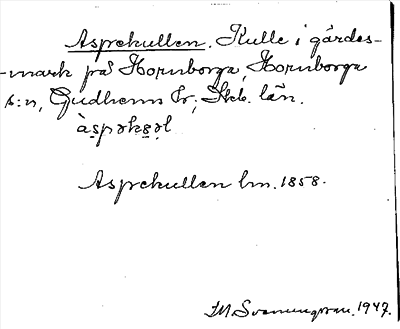 Asprekullen. Kulle i gärdes-
-mark på Hornborga, Hornborga
s:n, Gudhems hr; Skb. län.
Asprekullen lm. 1858.
1947.